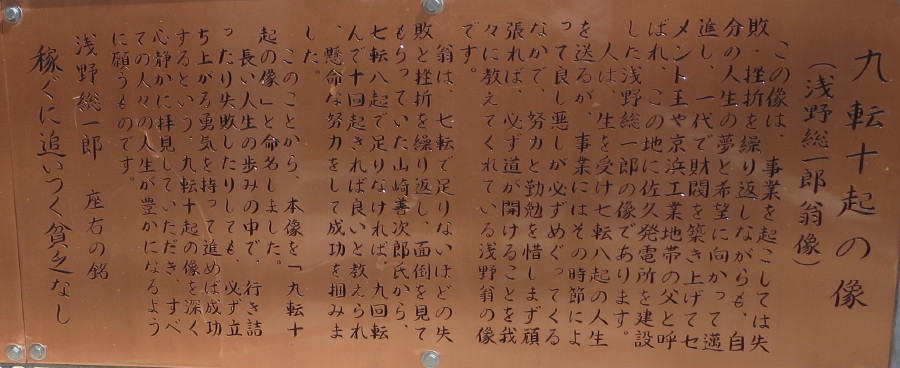 九転十起の像
（浅野総一郎翁像）
この像は、事業を起こしては失
敗・挫折を繰り返しながらも、自
分の人生の夢と希望に向かって邁
進し、一代で財閥を築き上げてセ
メント王や京浜工業地帯の父と呼
ばれ、この地に佐久発電所を建設
した浅野総一郎の像であります。
人は、生を受け七転八起の人生
を送るが、事業にはその時節によ
って良し悪しが必ずめぐってくる
なかで、努力と勤勉を惜しまず頑
張れば、必ず道が開けることを我
々に教えてくれている浅野翁の像
です。
翁は、七転で足りないほどの失
敗と挫折を繰り返し、面倒を見て
もらっていた山崎善次郎氏から、
七転八起で足りなければ、九回転
んで十回起きれば良いと教えられ
、懸命な努力をして成功を掴みま
した。
このことから、本像を「九転十
起の像」と命名しました。
長い人生の歩みの中で、行き詰
ったり失敗したりしても、必ず立
ち上がろう勇気を持って進めば成功
するという、九転十起の像を深く
心静かに拝見していただき、すべ
ての人々の人生が豊かになるよう
に願うものです。
浅野総一郎　座右の銘
稼ぐに追いつく貧乏なし